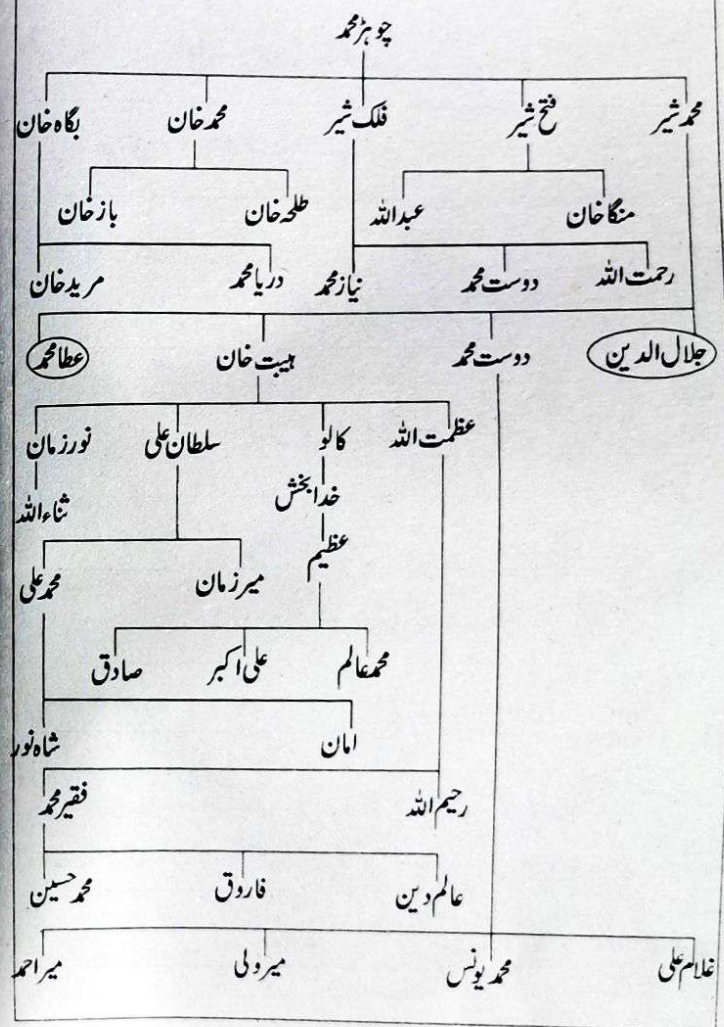 چوہڑ محمد
محمد شیر فتح شیر فلک شیر محمد خان بگاہ خان
منگا خان عبداللہ طلحہ خان باز خان
رحمت اللہ دوست محمد نیاز محمد دریا محمد مرید خان
جلال الدین دوست محمد ہیبت خان عطا محمد
عظمت اللہ کالو سلطان علی نور زمان
خدا بخش ثناء اللہ
عظیم میر زمان محمد علی
محمد عالم علی اکبر صادق
امان شاہ نور
رحیم اللہ فقیر محمد
عالم دین فاروق محمد حسین
غلام علی محمد یونس میر ولی میر احمد